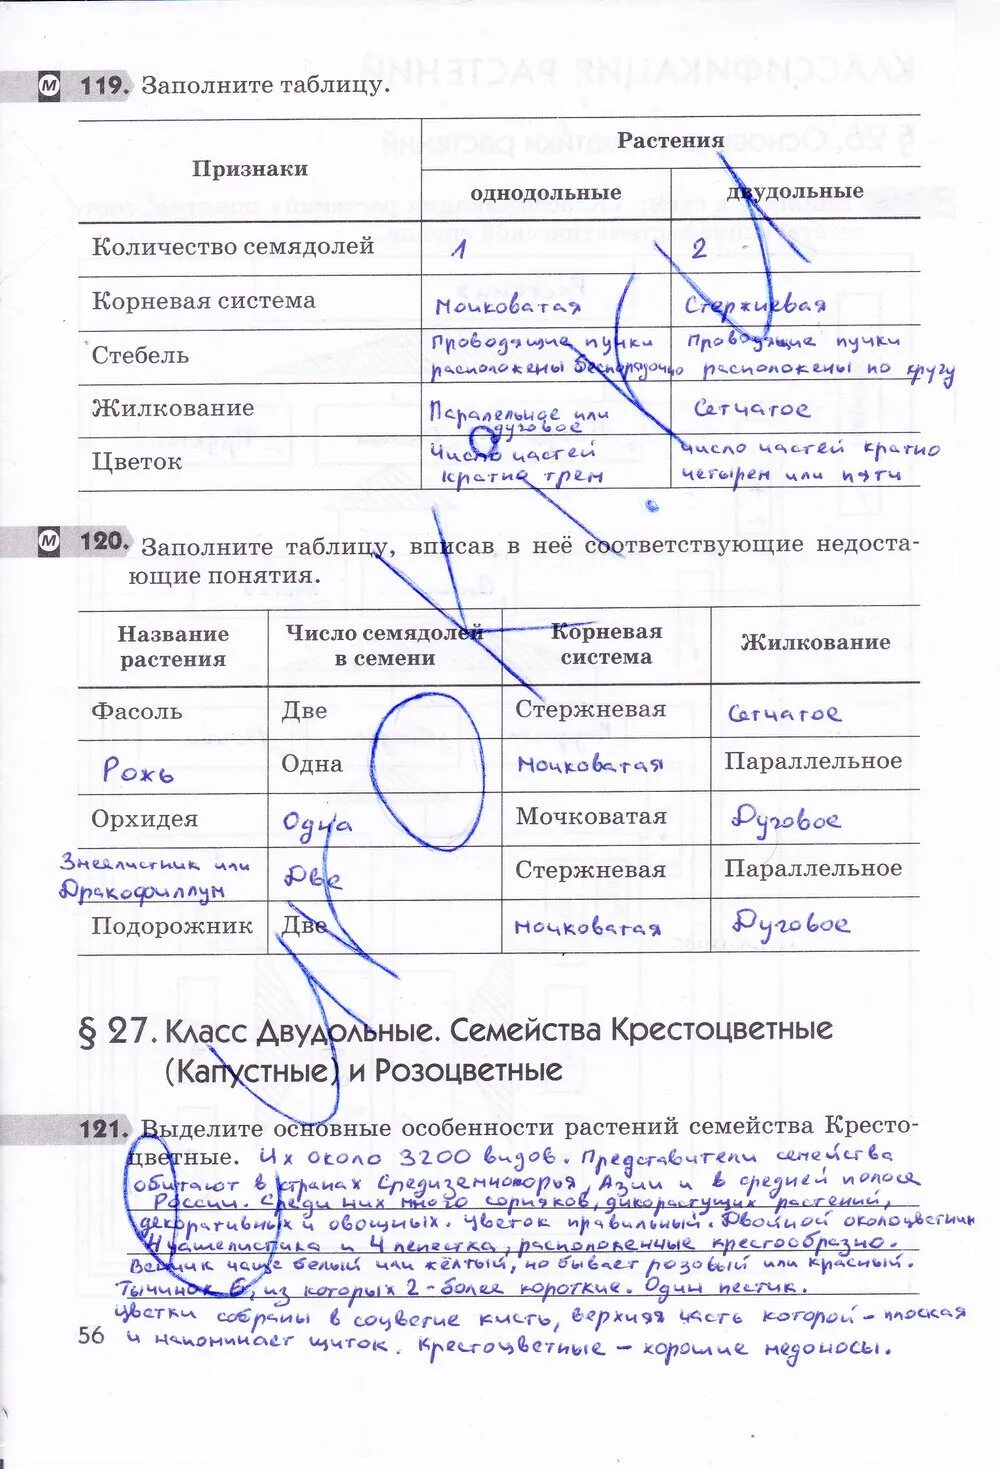 М 119. Заполните таблицу.
Признаки
Растения
однодольные двудольные
Количество семядолей 1 2
Корневая система Мочковатая Стержневая
Стебель Проводящие пучки расположены беспорядочно Проводящие пучки расположены по кругу
Жилкование Паралельное или дуговое Сетчатое
Цветок Число частей кратно трем число частей кратно четырем или пяти
М 120. Заполните таблицу, вписав в неё соответствующие недоста-
ющие понятия.
Название растения Число семядолей в семени Корневая система Жилкование
Фасоль Две Стержневая Сетчатое
Рожь Одна Мочковатая Параллельное
Орхидея Одна Мочковатая Дуговое
Змеелистник или Дракофиллум Две Стержневая Параллельное
Подорожник Две мочковатая Дуговое
§ 27. Класс Двудольные. Семейства Крестоцветные
(Капустные) и Розоцветные
121. Выделите основные особенности растений семейства Кресто-
цветные. Их около 3200 видов. Представители семейства
обитают в странах Средиземноморья, Азии и в средней полосе
России. Среди них много сорняков, дикорастущих растений,
декоративных и овощных. Цветок правильный. Двойной околоцветник
4 чашелистика и 4 лепестка, расположенные крестообразно.
Венчик чаще белый или жёлтый, но бывает розовый или красный.
Тычинок 6, из которых 2 - более короткие. Один пестик.
Цветки собраны в соцветие кисть, верхняя часть которой - плоская
и напоминает щиток. Крестоцветные - хорошие медоносы.
56
УРОКИ.ТУ